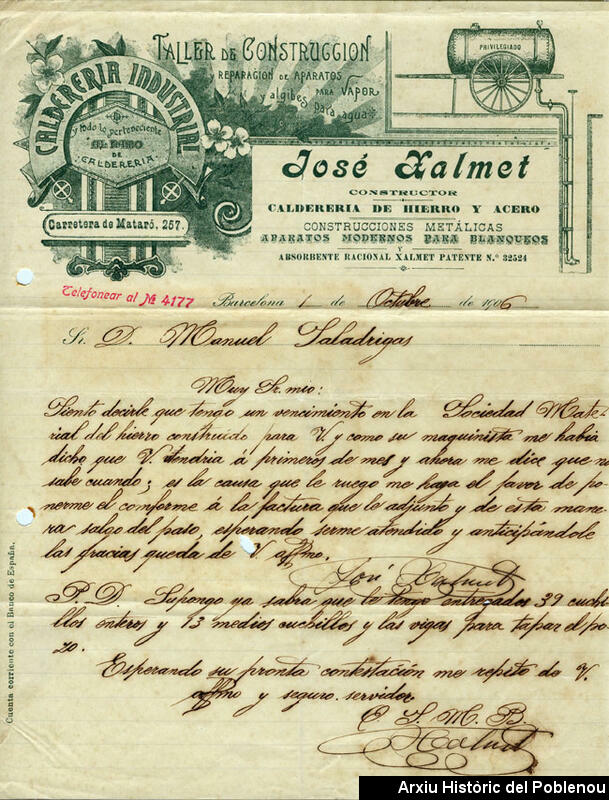 TALLER DE CONSTRUCCION
REPARACION DE APARATOS
PARA VAPOR
y algibes para agua
PRIVILEGIADO
CALDERERIA INDUSTRIAL
y todo lo perteneciente
AL RAMO
DE
CALDERERIA
Carretera de Mataró, 257.
José Xalmet
CONSTRUCTOR
CALDERERIA DE HIERRO Y ACERO
CONSTRUCCIONES METÁLICAS
APARATOS MODERNOS PARA BLANQUEOS
Y
ABSORBENTE RACIONAL XALMET PATENTE N.º 32524
Telefonear al Nº 4177
Barcelona 1 de Octubre de 1906
Sr. D. Manuel Saladrigas
Muy Sr. mio:
Siento decirle que tengo un vencimiento en la Sociedad Mate-
rial del hierro construido para V. y como su maquinista me habia
dicho que V. vendria á primeros de mes y ahora me dice que no
sabe cuando; es la causa que le ruego me haga el favor de po-
nerme el comforme á la factura que le adjunto y de esta mane
ra salgo del paso, esperando serme atendido y anticipándole
las gracias queda de V. affmo.
José Xalmet
P. D. Supongo ya sabra que le tengo entregados 39 cuchi-
llos enteros y 13 medios cuchillos y las vigas para tapar el po-
zo.
Esperando su pronta contestación me repito de V.
affmo y seguro servidor
E. S. M. B.
Xalmet
Cuenta corriente con el Banco de España.
Arxiu Històric del Poblenou